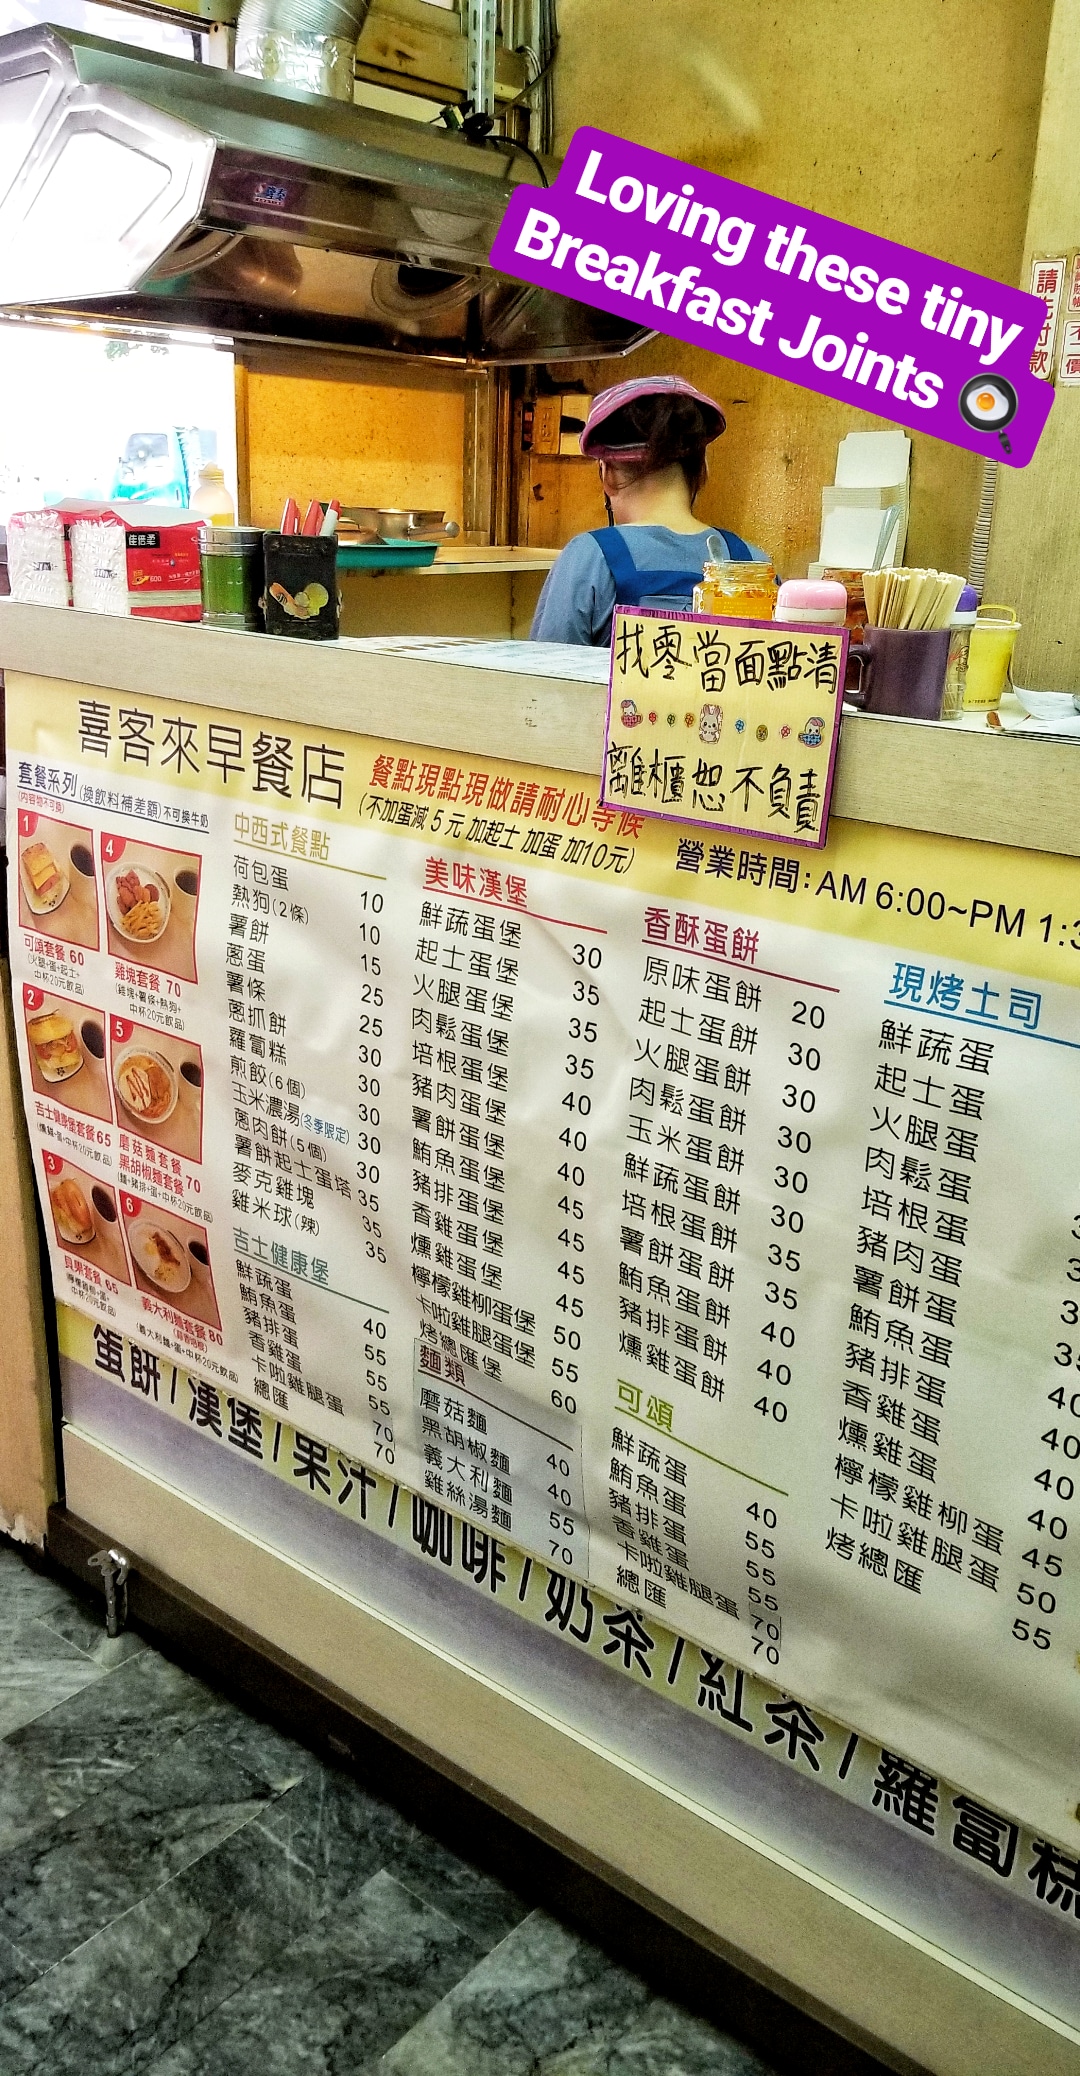 Loving these tiny
Breakfast Joints
請先付款
佳倍柔
找零當面點清
離櫃恕不負責
喜客來早餐店
餐點現點現做請耐心等候
(不加蛋減 5 元 加起士 加蛋 加10元)
營業時間：AM 6:00~PM 1:3
套餐系列(換飲料補差額)不可換牛奶
(內容物不可換)
1
可頌套餐 60
(火腿+蛋+起士+
中杯20元飲品)
4
雞塊套餐 70
(雞塊+薯條+熱狗+
中杯20元飲品)
2
吉士健康堡套餐65
5
磨菇麵套餐
黑胡椒麵套餐 70
(麵+豬排+蛋+中杯20元飲品)
3
貝果套餐 65
中杯20元飲品)
6
義大利麵套餐80
(義大利麵+蛋+中杯20元飲品)
中西式餐點
荷包蛋 10
熱狗(2條) 10
薯餅 15
蔥蛋 25
薯條 25
蔥抓餅 30
蘿蔔糕 30
煎餃(6個) 30
玉米濃湯(冬季限定) 30
蔥肉餅(5個) 30
薯餅起士蛋塔 35
麥克雞塊 35
雞米球(辣) 35
吉士健康堡
鮮蔬蛋 40
鮪魚蛋 55
豬排蛋 55
香雞蛋 55
卡啦雞腿蛋 70
總匯 70
美味漢堡
鮮蔬蛋堡 30
起士蛋堡 35
火腿蛋堡 35
肉鬆蛋堡 35
培根蛋堡 40
豬肉蛋堡 40
薯餅蛋堡 40
鮪魚蛋堡 45
豬排蛋堡 45
香雞蛋堡 45
燻雞蛋堡 45
檸檬雞柳蛋堡 50
卡啦雞腿蛋堡 55
烤總匯堡 60
麵類
磨菇麵 40
黑胡椒麵 40
義大利麵 55
雞絲湯麵 70
香酥蛋餅
原味蛋餅 20
起士蛋餅 30
火腿蛋餅 30
肉鬆蛋餅 30
玉米蛋餅 30
鮮蔬蛋餅 30
培根蛋餅 35
薯餅蛋餅 35
鮪魚蛋餅 40
豬排蛋餅 40
燻雞蛋餅 40
可頌
鮮蔬蛋 40
鮪魚蛋 55
豬排蛋 55
香雞蛋 55
卡啦雞腿蛋 70
總匯 70
現烤土司
鮮蔬蛋
起士蛋
火腿蛋
肉鬆蛋
培根蛋
豬肉蛋
薯餅蛋
鮪魚蛋 35
豬排蛋 40
香雞蛋 40
燻雞蛋 40
檸檬雞柳蛋 45
卡啦雞腿蛋 50
烤總匯 55
蛋餅/漢堡/果汁/咖啡/奶茶/紅茶/蘿蔔糕